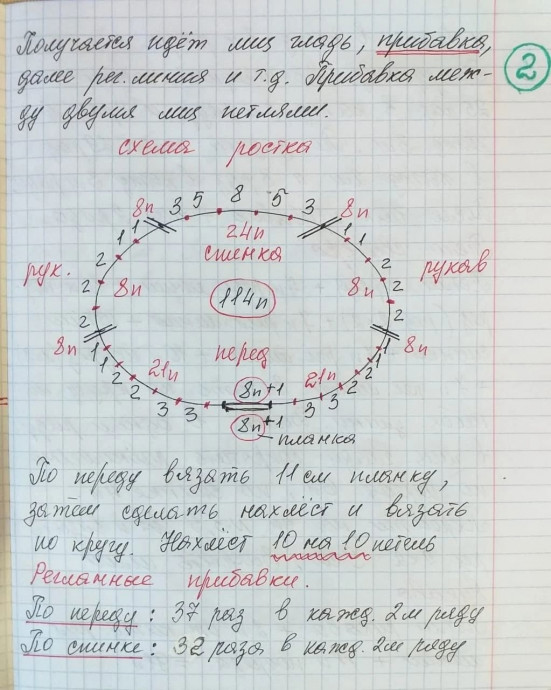 Получается идёт лиц гладь, прибавка,
далее рег. линия и т.д. Прибавка меж-
ду двумя лиц петлями.
2
схема ростка
8п 3 5 8 5 3 8п
1 1 24п 1 1
спинка
рук. 2 2 2 8п 114п 8п 2 2 2 рукав
8п перед 8п
1 1 2 2 3 3 21п 8п+1 21п 3 3 2 2 1 1
8п+1
планка
По переду вязать 11 см планку,
затем сделать нахлёст и вязать
по кругу. Нахлёст 10 на 10 петель
Регланные прибавки.
По переду: 37 раз в кажд. 2м ряду
По спинке: 32 раза в кажд. 2м ряду